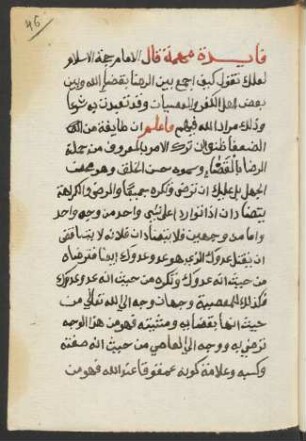 46
فايدة مهمة قال الامام حجة الاسلام
لعلك تقول كيف اجمع بين الرضا بقضا الله وبين
بغض اهل الكفر والمعصيات وقد تعبدت به شرعا
وذلك مراد الله فيهم فاعلم ان طايفة من
الضعفا ظنوا ان ترك الامر بالمعروف من جملة
الرضا بالقضاء وسموه حسن الخلق وهو محض
الجهل بل عليك ان ترضى وتكره جميعا والرضى والكراهة
يتضادان اذا توارد اعلى شي واحد من وجه واحد
واما من وجهين فلا يتضادان فلانه لا يتناقض
ان يقتل عدوك الذي هو عدو عدوك ايضا فترضاه
من حيث انه عدوك وتكره من حيث انه عدو عدوك
فكذلك للمعصية وجهان وجه الى الله تعالى من
حيث انها بقضايه ومشيئته فهو من هذا الوجه
ترضى به ووجه الى العاصي من حيث انه صفته
وكسبه وعلامة كونه ممقوتا عند الله فهو من